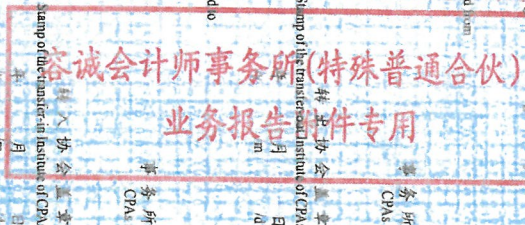 容诚会计师事务所(特殊普通合伙)
业务报告附件专用
Stamp of the transfer-out Institute of CPAs
转出协会盖章
事务所
CPAs
年 月 日
Stamp of the transfer-in Institute of CPAs
转入协会盖章
事务所
CPAs
月 日